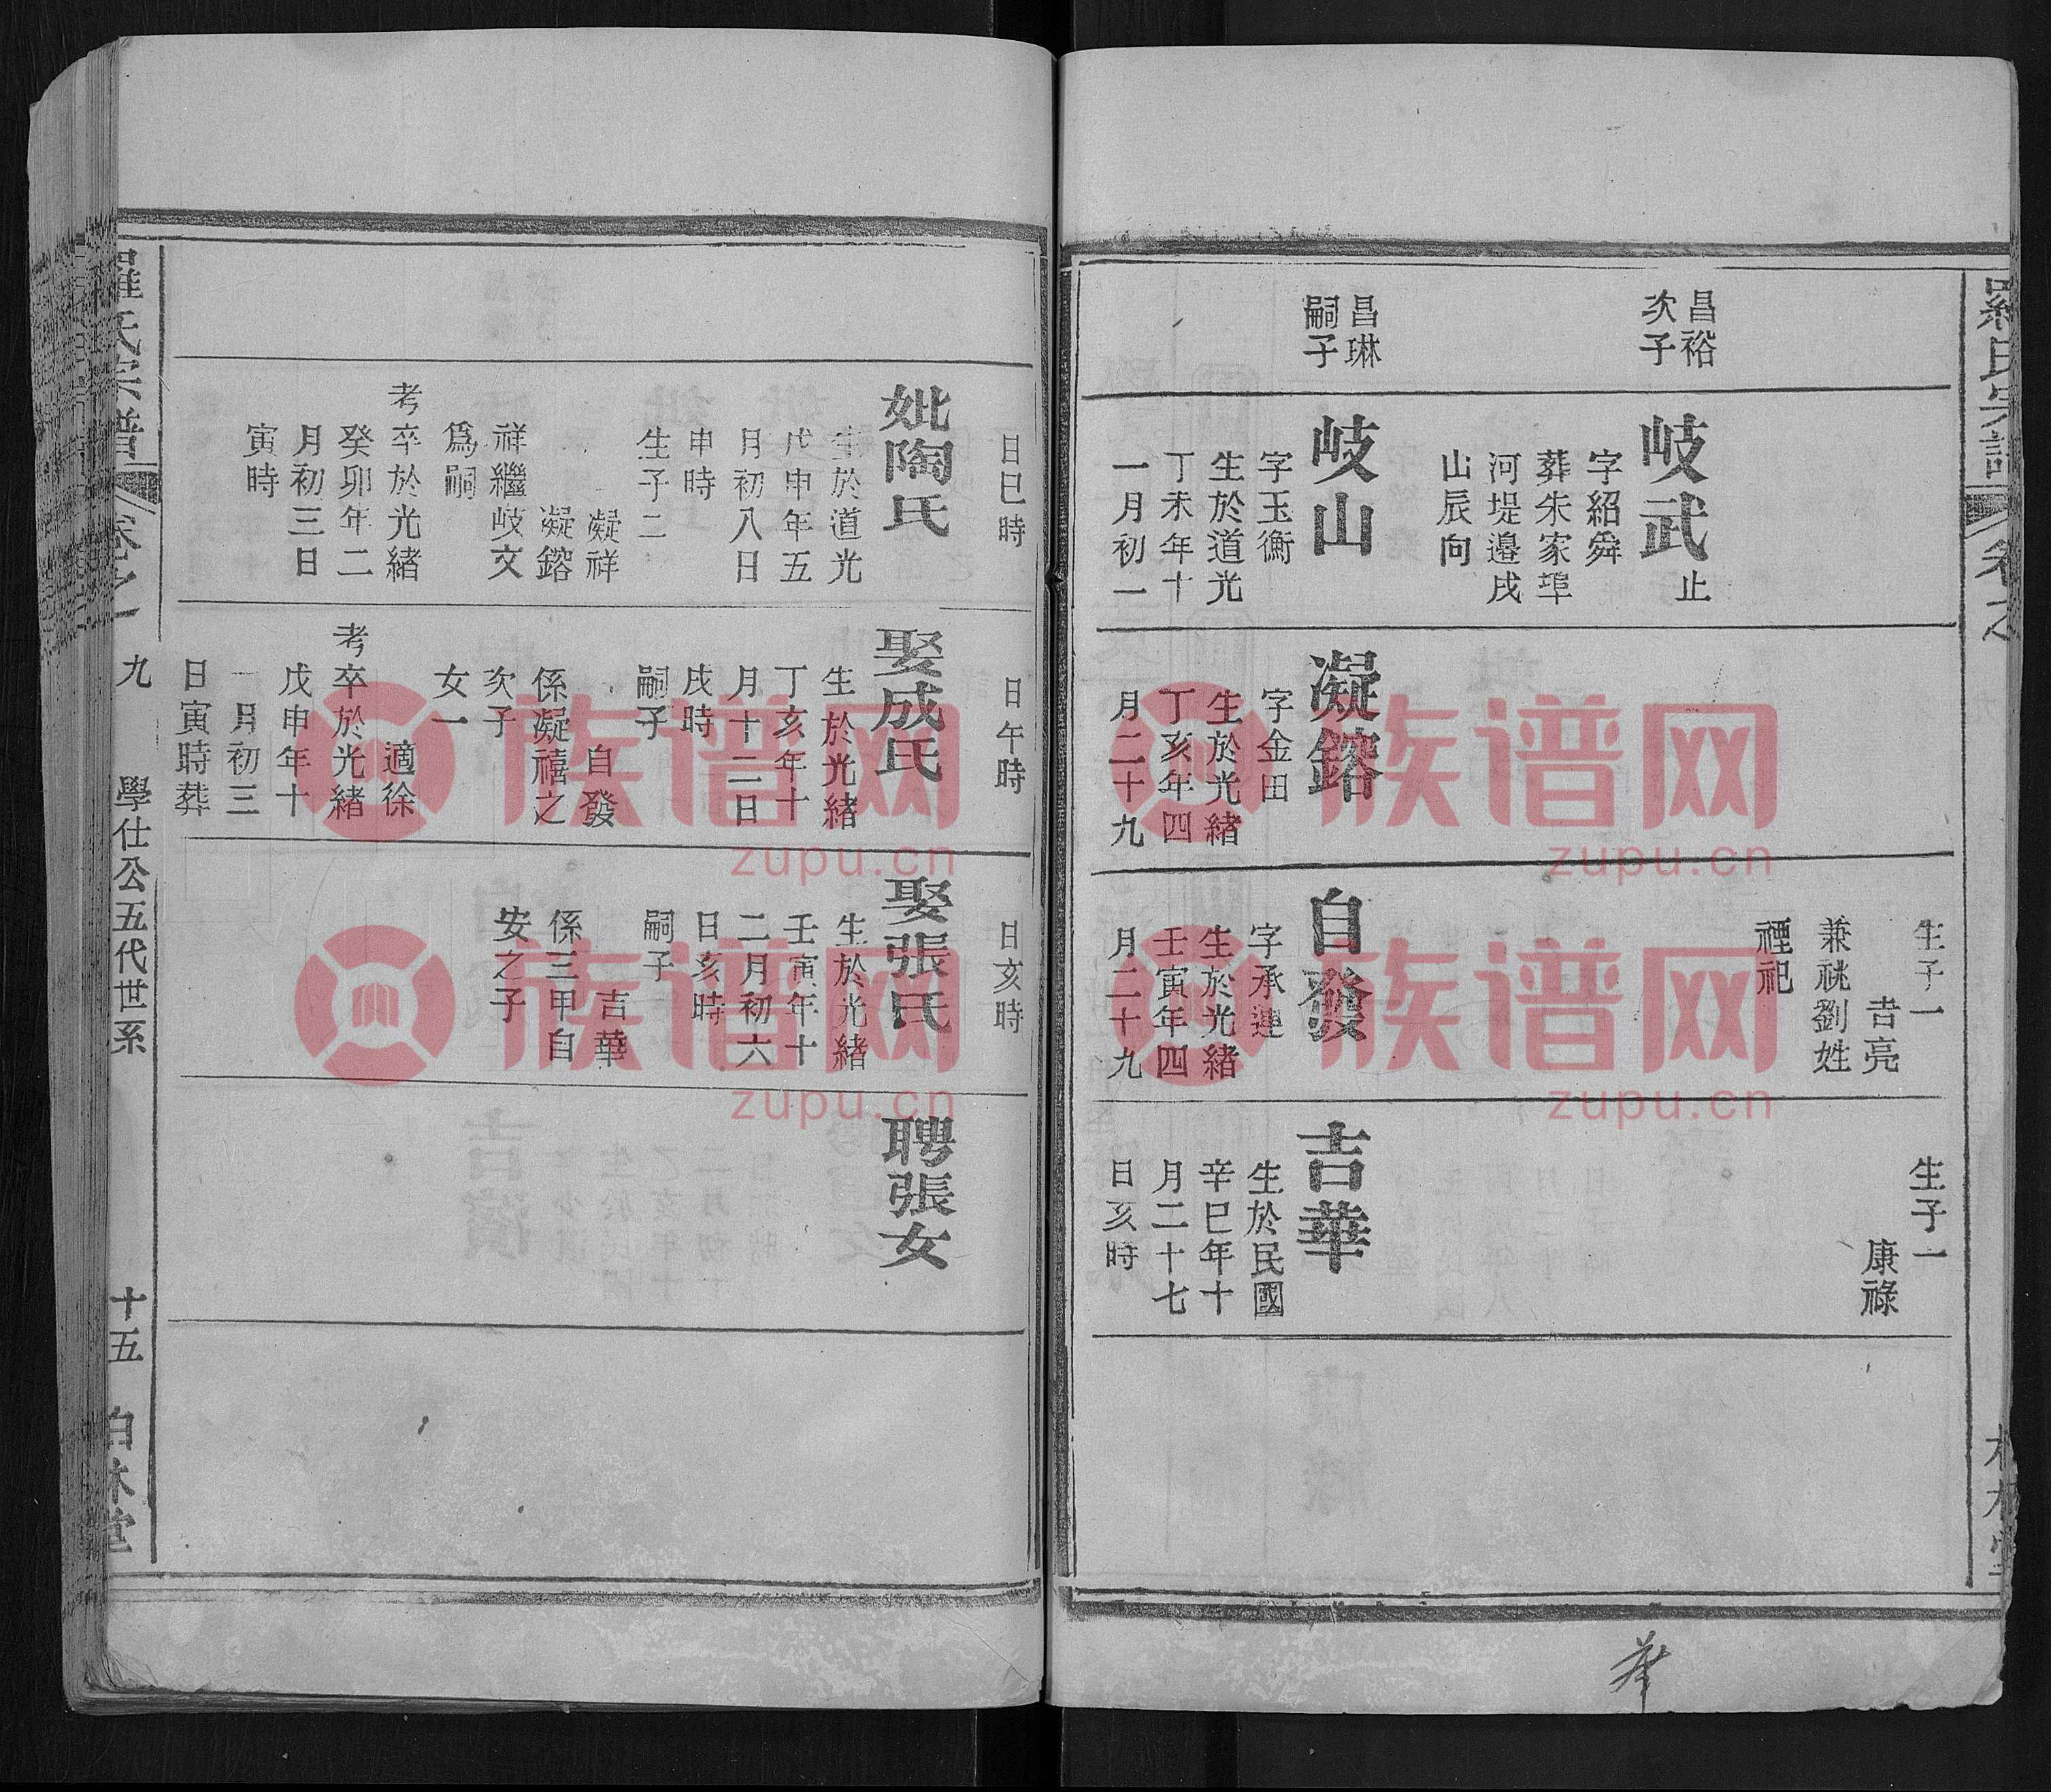 羅氏宗譜
卷之
昌裕
次子
昌琳
嗣子
岐武
止
字紹舜
葬朱家埠
河堤邊戌
山辰向
岐山
字玉衡
生於道光
丁未年十
一月初一
凝鎔
字金田
生於光緒
丁亥年四
月二十九
生子一
吉亮
兼祧劉姓
禋祀
自發
字承運
生於光緒
壬寅年四
月二十九
生子一
康祿
吉華
生於民國
辛巳年十
月二十七
日亥時
日巳時
妣陶氏
生於道光
戊申年五
月初八日
申時
生子二
凝祥
凝鎔
祥繼岐文
爲嗣
考卒於光緒
癸卯年二
月初三日
寅時
日午時
娶成氏
生於光緒
丁亥年十
月十二日
戌時
嗣子
自發
係凝禧之
次子
女一
適徐
考卒於光緒
戊申年十
一月初三
日寅時葬
日亥時
娶張氏
生於光緒
壬寅年十
二月初六
日亥時
嗣子
吉華
係三甲自
安之子
聘張女
羅氏宗譜
卷之一
九
學仕公五代世系
十五
族谱网
zupu.cn
族谱网
zupu.cn
族谱网
zupu.cn
族谱网
zupu.cn